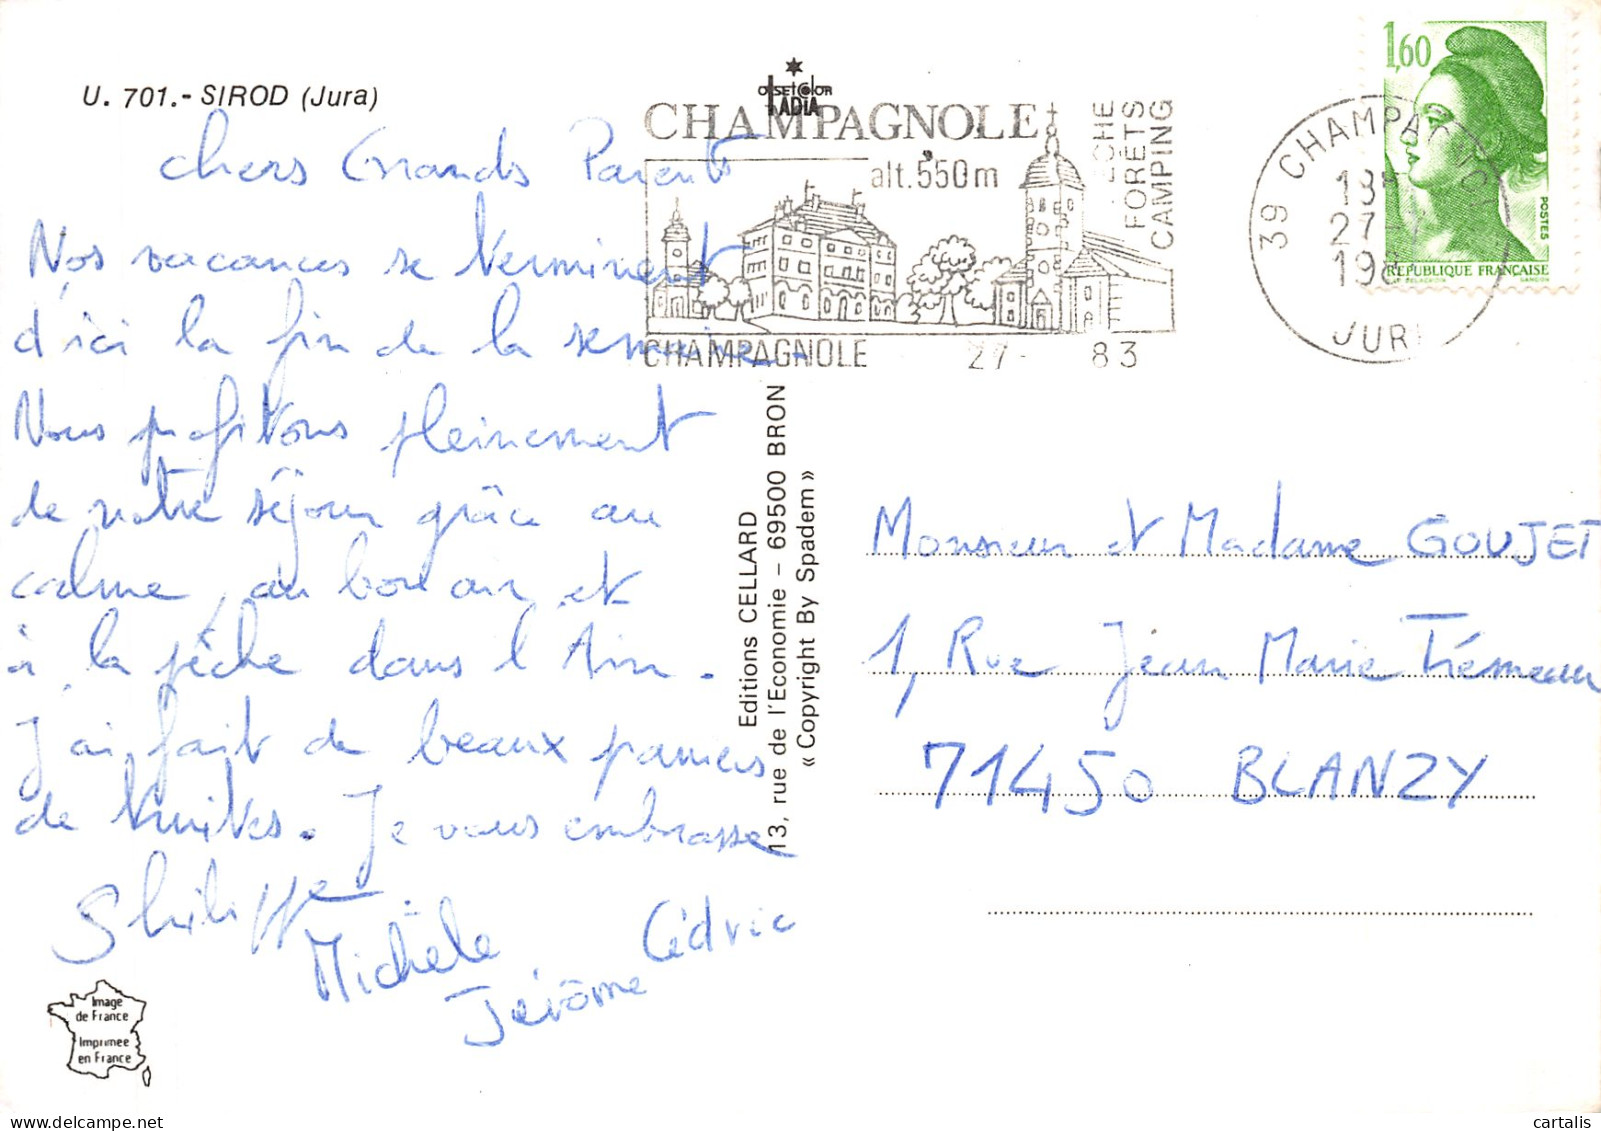 U. 701.- SIROD (Jura)
Chers Grands Parents
Nos vacances se terminent
d'ici la fin de la semaine.
Nous profitons pleinement
de notre séjour grâce au
calme, au bon air et
à la pêche dans l'Ain.
J'ai fait de beaux paniers
de truites. Je vous embrasse
Philippe
Michèle
Cédric
Jérôme
Image
de France
Imprimée
en France
OFFSET COLOR
IADIA
CHAMPAGNOLE
alt. 550m
PÊCHE
FORÊTS
CAMPING
CHAMPAGNOLE 27- 83
39 CHAMPAGNOLE
18H
27-
198
JURA
1,60
POSTES
REPUBLIQUE FRANÇAISE
Editions CELLARD
13, rue de l'Economie – 69500 BRON
« Copyright By Spadem »
Monsieur et Madame GOUJET
1, Rue Jean Marie Trémeau
71450 BLANZY
cartalis